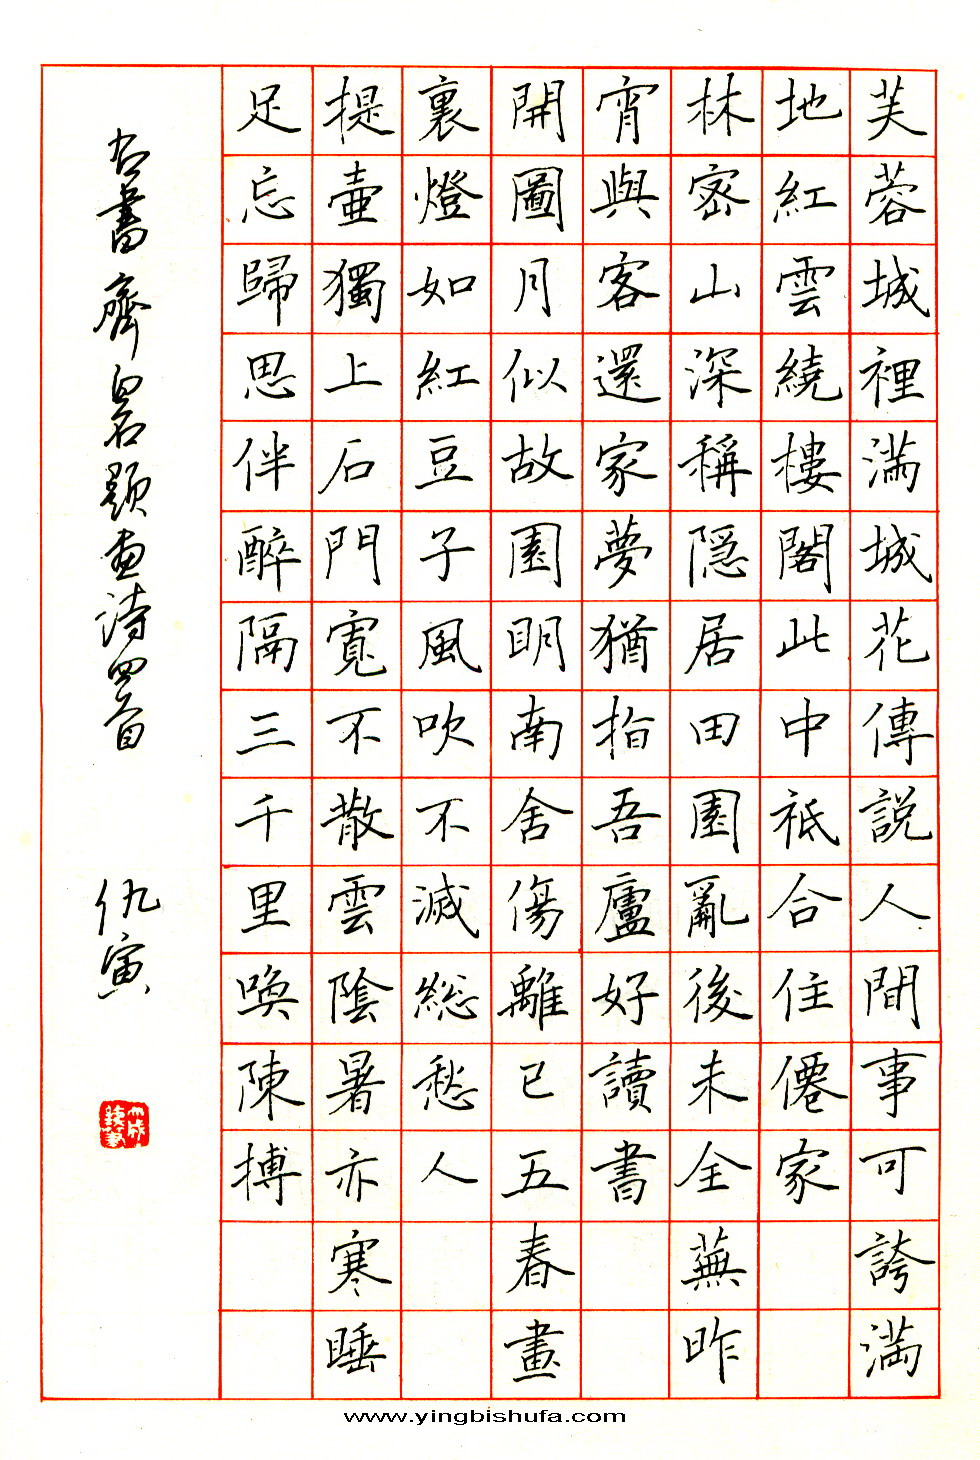 芙蓉城裡滿城花傳說人間事可誇滿
地紅雲繞樓閣此中祗合住僊家
林密山深稱隱居田園亂後未全蕪昨
宵與客還家夢猶指吾廬好讀書
開圖月似故園明南舍傷離已五春畫
裏燈如紅豆子風吹不滅總愁人
提壺獨上石門寬不散雲陰暑亦寒睡
足忘歸思伴醉隔三千里喚陳搏
右書齊白石題画詩四首 仇寅
www.yingbishufa.com